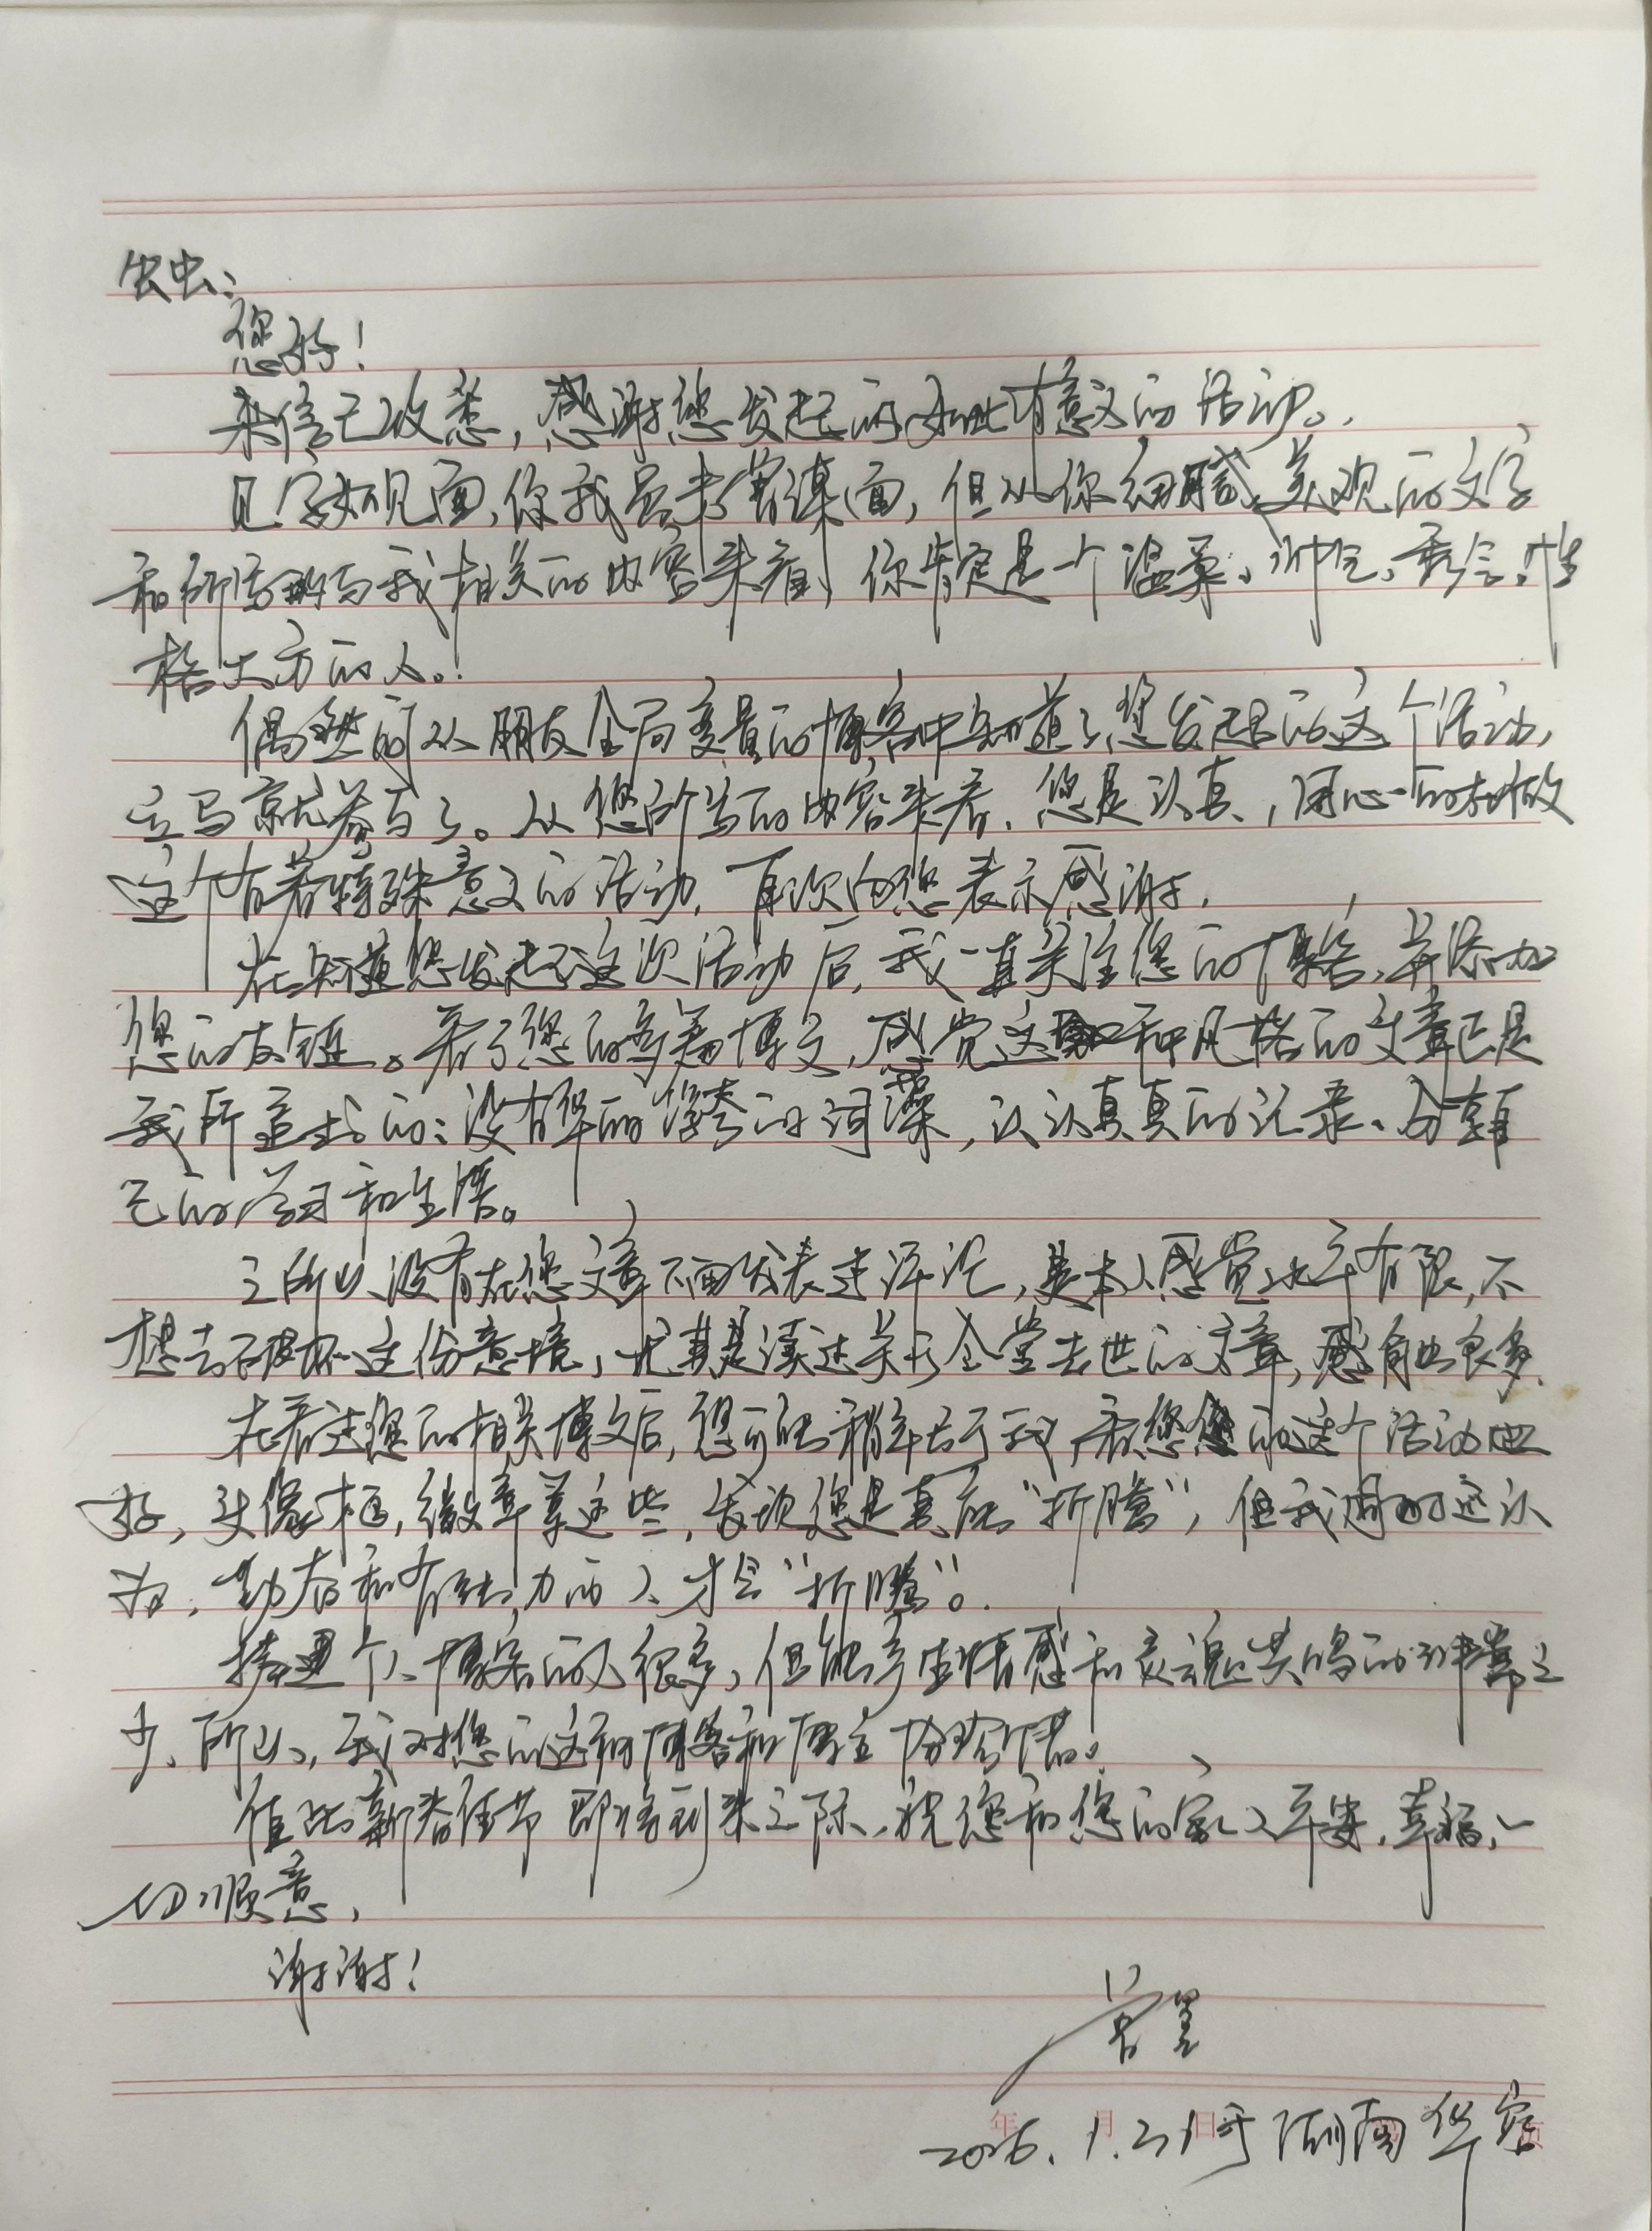 虫虫：
您好！
来信已收悉，感谢您发起的如此有意义的活动。
见字如见面，你我虽未曾谋面，但从你细腻、美观的文字
和所写与我相关的内容来看，你肯定是一个温柔、帅气、秀气、性
格大方的人。
偶然间从朋友全局变量的博客中知道了您发起的这个活动，
立马就参与了。从您所写的内容来看，您是认真、用心的在做
这个有着特殊意义的活动，再次向您表示感谢。
在知道您发起这次活动后，我一直关注您的博客，并添加
您的友链。看了您的每篇博文，感觉这种风格的文章正是
我所追求的：没有华丽浮夸的词藻，认认真真的记录、分享自
己的学习和生活。
之所以没有在您文章下面发表过评论，是本人感觉水平有限，不
想去破坏这份意境，尤其是读过关于全堂去世的文章，感触也很多。
在看过您的相关博文后，您可能稍年长于我，看您的这个活动也
好，头像框，徽章等这些，发现您是真能“折腾”，但我还认
为，勤奋和有能力的人才会“折腾”。
搭建个人博客的人很多，但能产生情感和灵魂共鸣的非常之
少，所以，我对您的这种博客和博主十分珍惜。
值此新春佳节即将到来之际，祝您和您的家人平安，幸福，一
切顺意，
谢谢！
2026.1.21于湖南华容
年 月 日